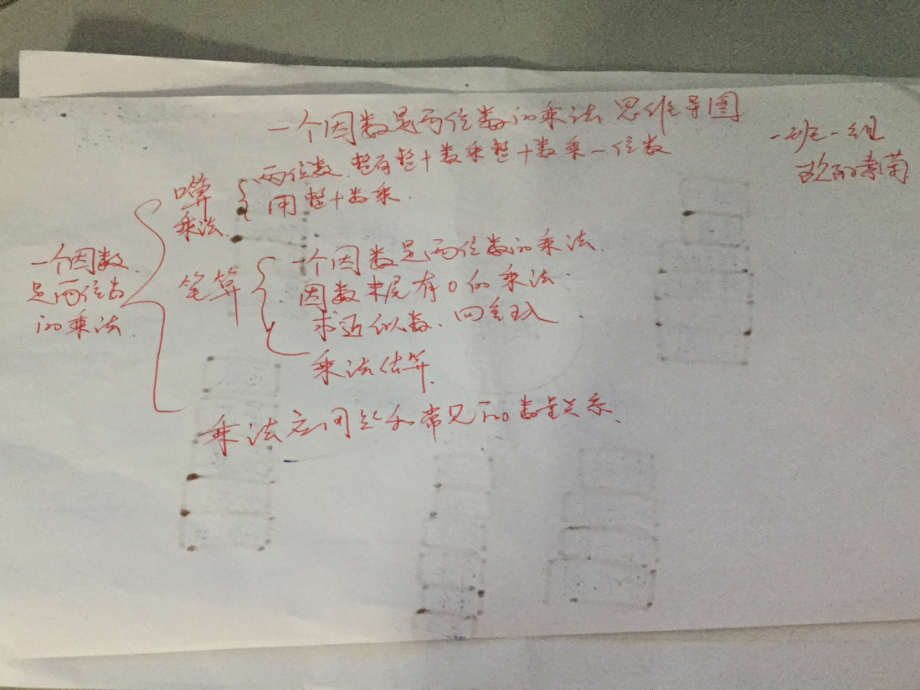 一个因数是两位数的乘法 思维导图
一班一组
口算
乘法
两位数、整百整十数乘整十数乘一位数
用整十数乘
一个因数
是两位数
的乘法
笔算
一个因数是两位数的乘法
因数末尾有0的乘法
求近似数、四舍五入
乘法估算
乘法应用题和常见的数量关系